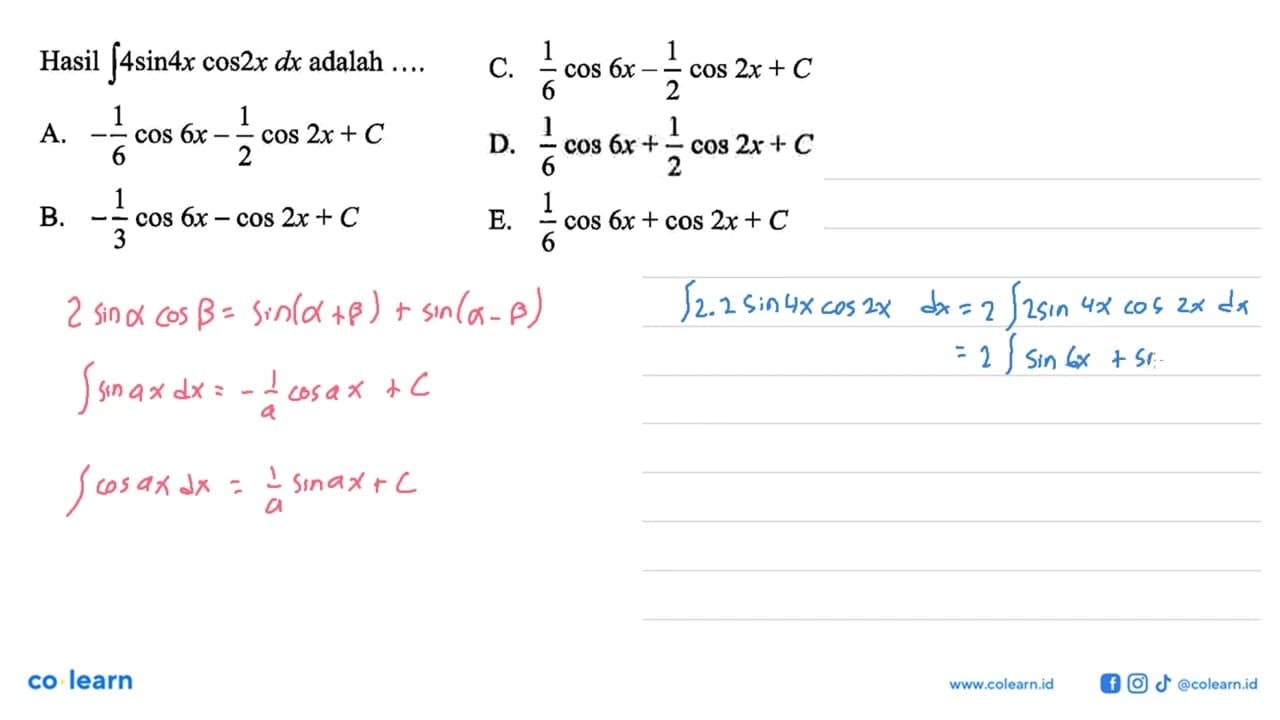 Hasil ∫4sin4x cos2x dx adalah ....
A. -1/6 cos 6x - 1/2 cos 2x + C
B. -1/3 cos 6x - cos 2x + C
C. 1/6 cos 6x - 1/2 cos 2x + C
D. 1/6 cos 6x + 1/2 cos 2x + C
E. 1/6 cos 6x + cos 2x + C
2 sin α cos β = sin(α + β) + sin(α - β)
∫ sin ax dx = - 1/a cos ax + C
∫ cos ax dx = 1/a sin ax + C
∫ 2.2 sin 4x cos 2x dx = 2 ∫ 2 sin 4x cos 2x dx
= 2 ∫ sin 6x + s
co learn
www.colearn.id
@colearn.id